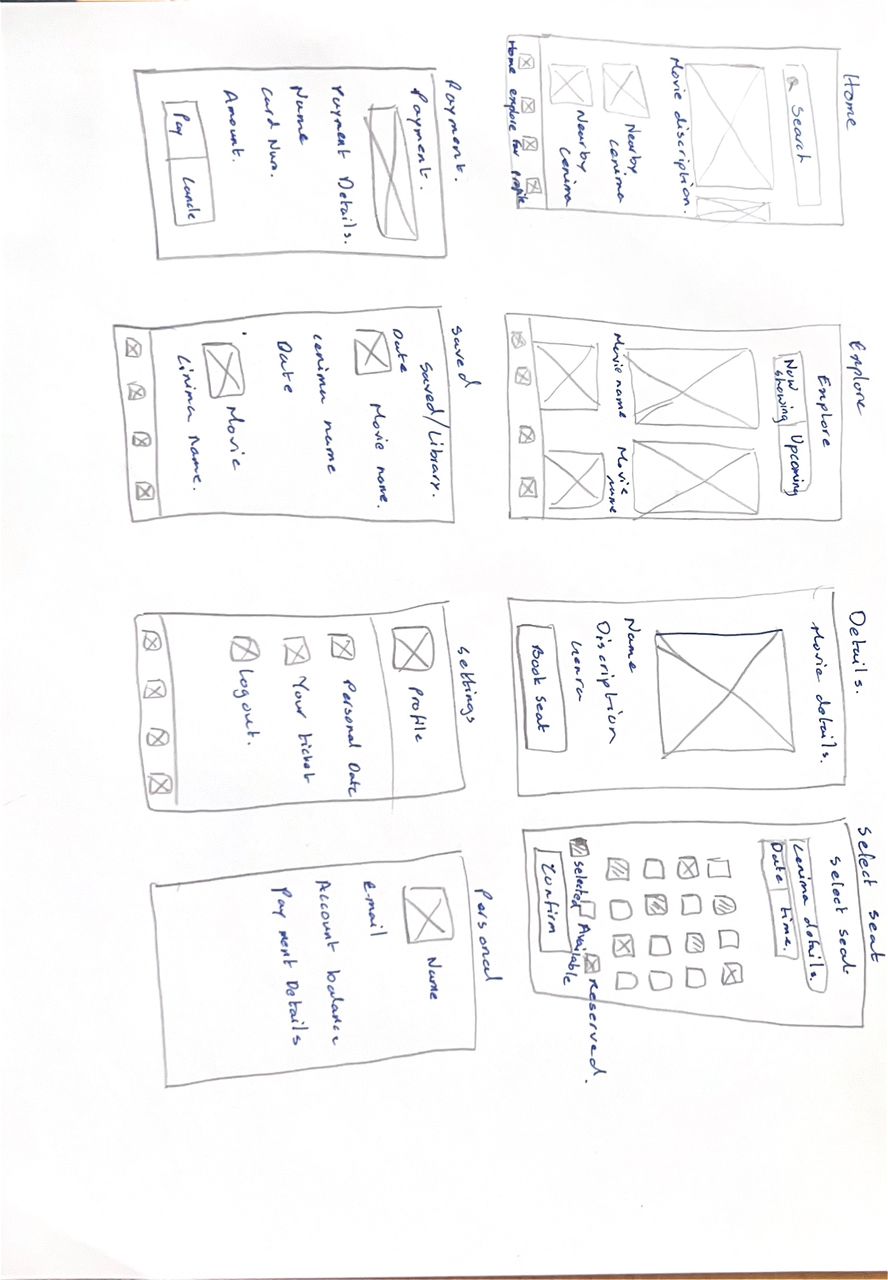 Home
Search
Movie discription.
Nearby
Cenima
Nearby
Cenima
Home explore Fav Profile
Explore
Explore
Now
showing
Upcoming
Movie name
Movie
name
Details.
Movie details.
Name
Discription
Genra
Book Seat
Select seat
Select seat
Cenima details.
Date time.
selected Available Reserved.
Confirm
Payment.
Payment.
Payment Details.
Name
Card Num.
Amount.
Pay Cancle
Saved
Saved/Library.
Date
Movie name.
cenima name
Date
Movie
Cinima name.
Settings
Profile
Personal Date
Your ticket
Logout.
Personal
Name
E-mail
Account balance
Payment Details